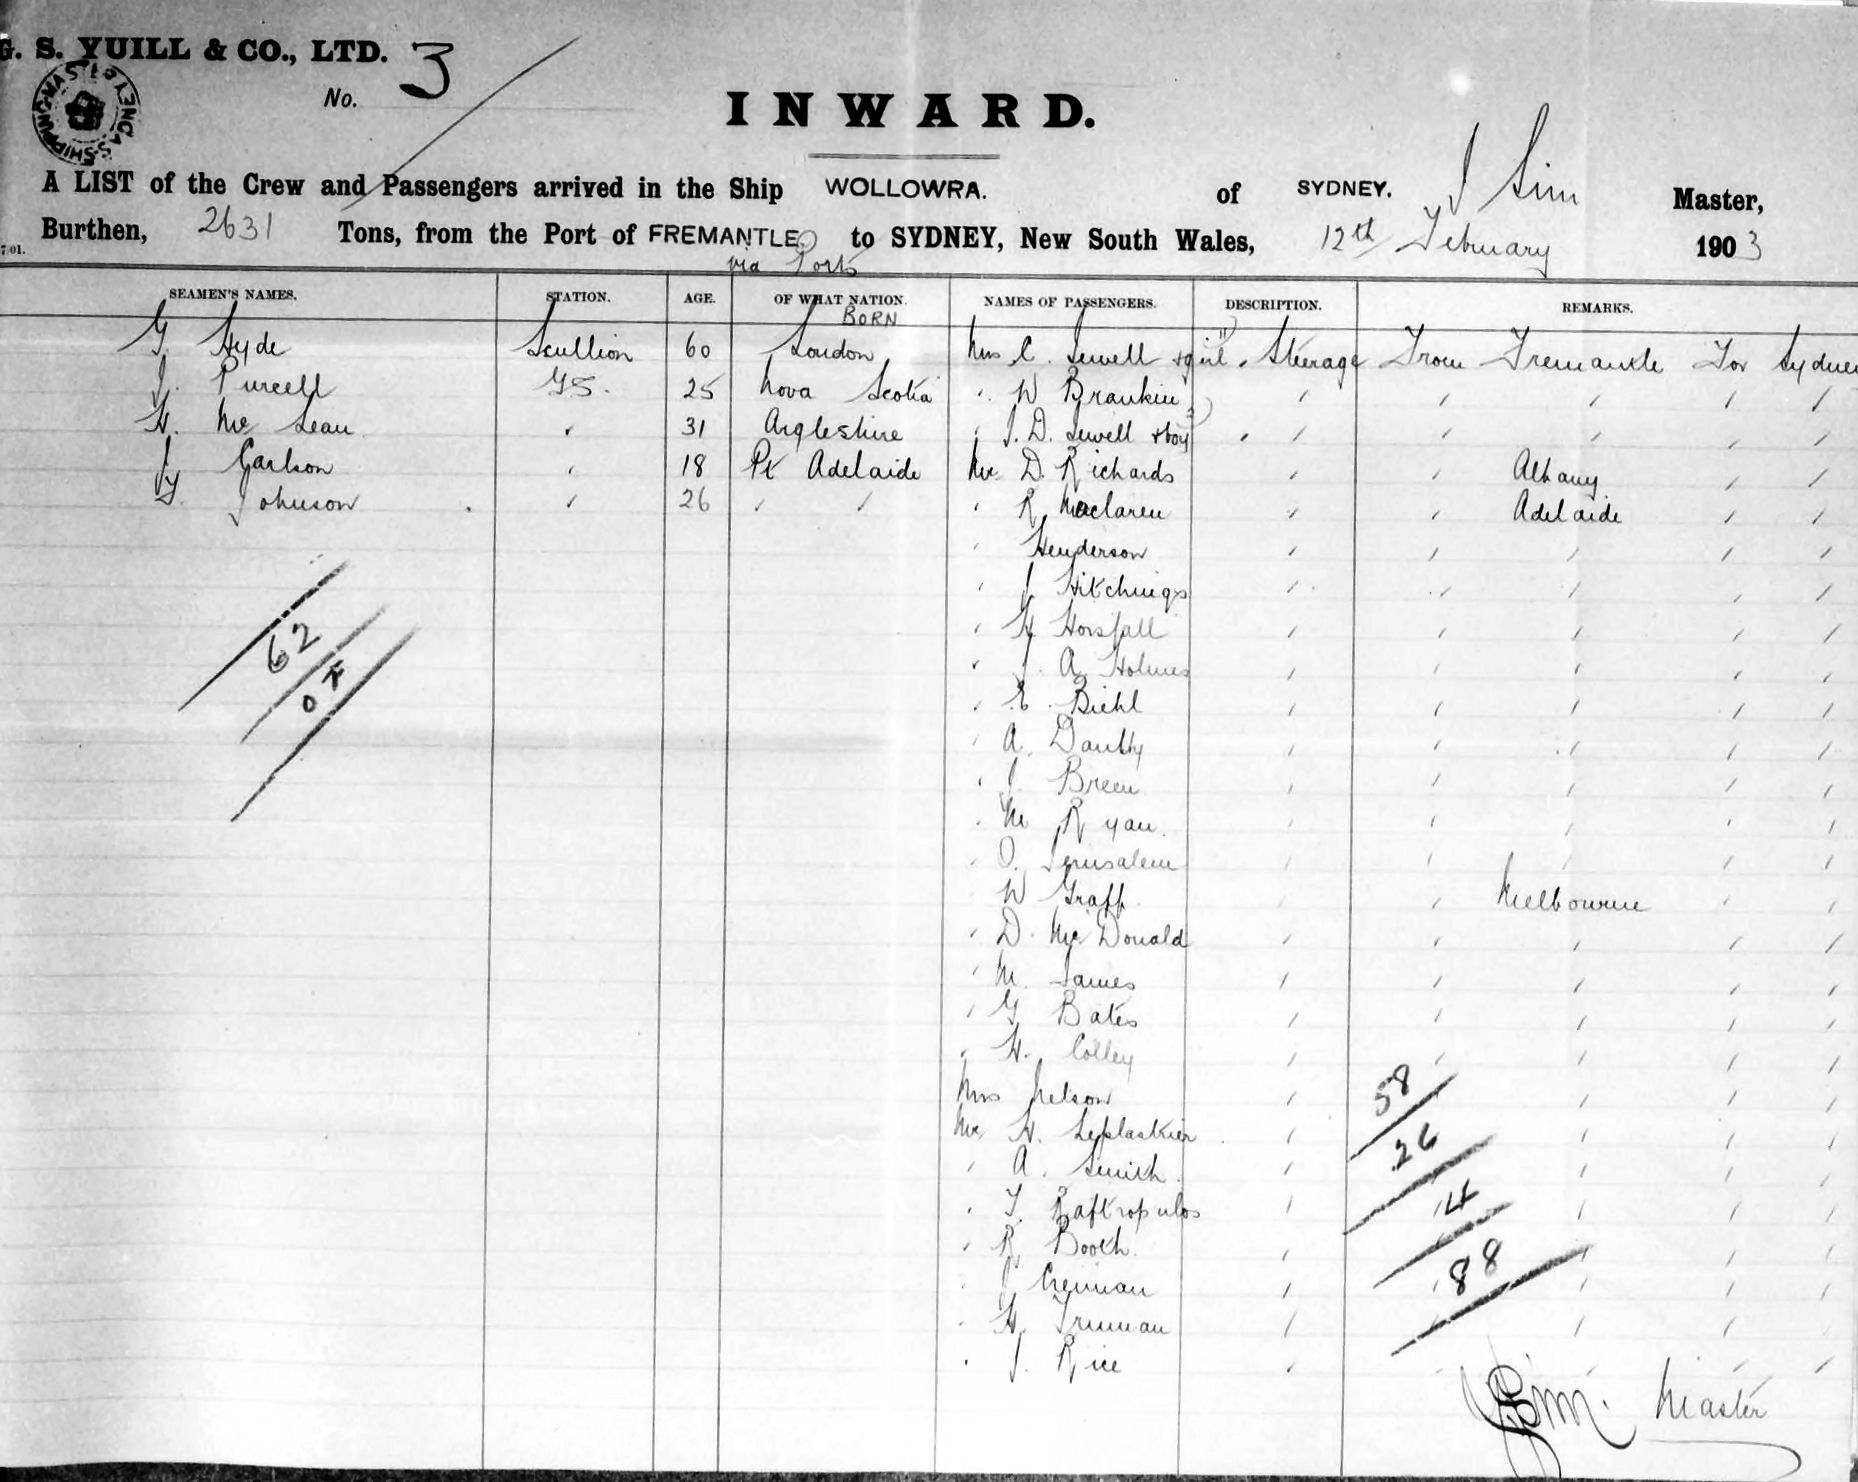 G. S. YUILL & CO., LTD.
No. 3
SHIPPING MASTERS SYDNEY
INWARD.
A LIST of the Crew and Passengers arrived in the Ship WOLLOWRA. of SYDNEY. J Sim Master,
Burthen, 2631 Tons, from the Port of FREMANTLE to SYDNEY, New South Wales, 12th February 1903
via Ports
7.01.
SEAMEN'S NAMES. STATION. AGE. OF WHAT NATION. NAMES OF PASSENGERS. DESCRIPTION. REMARKS.
BORN
G. Hyde Scullion 60 London Mrs C. Sewell & girl (1) Steerage From Fremantle For Sydney
J. Purcell G.S. 25 Nova Scotia " W Brankin " " " " "
H. Mc Lean " 31 Argleshire " J. D. Sewell & boy " " " " "
J. Carlson " 18 Pt Adelaide Mr D. Richards " " Albany " "
G. Johnson " 26 " " " R Maclaren " " Adelaide " "
" Henderson " " " " "
" J Hitchings " " " " "
62
" H Horsfall " " " " "
" J. A. Holmes " " " " "
" E. Biehl " " " " "
" A. " " " " "
" J. Breen " " " " "
" M Ryan. " " " " "
" O. Jerusalem " " " " "
" W Graff. " " Melbourne " "
" D. Mc Donald " " " " "
" M. James " " " " "
" G Bates " " " " "
" H. Colley " " " " "
Mrs Nelson " 58 " " "
Mr H. Leplastrier " 26 " " "
" A. Smith. " " " "
" T. Raftropulos " 14 " " "
" R Booth. " " " "
" J " 88 " " "
" H. Truman " " " " "
" J. Rice " " " " "
J Sim. Master